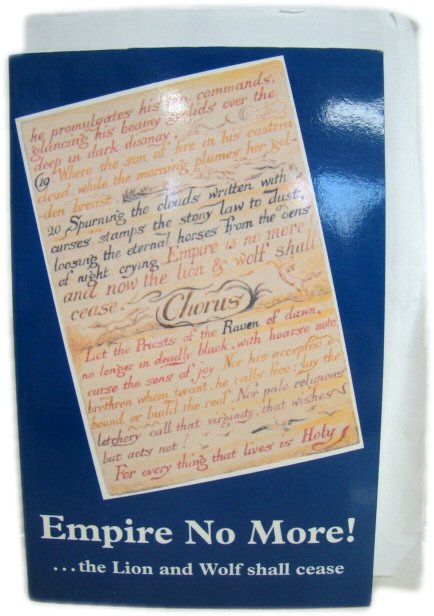 he promulgates his ten commands,
glancing his beamy eyelids over the
deep in dark dismay,
(19 Where the son of fire in his eastern
cloud, while the morning plumes her gol-
den breast,
20 Spurning the clouds written with
curses stamps the stony law to dust,
loosing the eternal horses from the dens
of night crying Empire is no more
and now the lion & wolf shall
cease.
Chorus
Let the Priests of the Raven of dawn,
no longer in deadly black, with hoarse note
curse the sons of joy. Nor his accepted
brethren whom, tyrant, he calls free: lay the
bound or build the roof. Nor pale religious
letchery call that virginity, that wishes
but acts not!
For every thing that lives is Holy
Empire No More!
...the Lion and Wolf shall cease